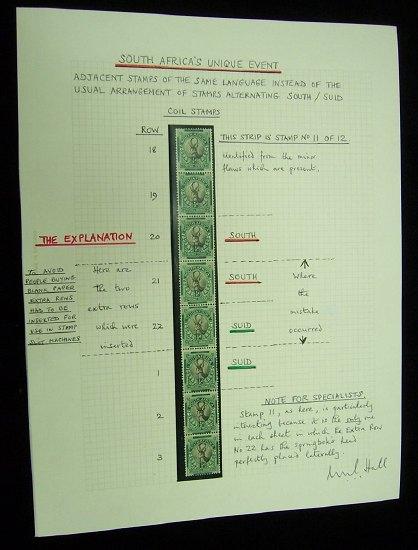 SOUTH AFRICA'S UNIQUE EVENT
ADJACENT STAMPS OF THE SAME LANGUAGE INSTEAD OF THE
USUAL ARRANGEMENT OF STAMPS ALTERNATING SOUTH / SUID
COIL STAMPS
ROW
THIS STRIP IS STAMP No 11 OF 12
18
Identified from the minor
flaws which are present.
19
THE EXPLANATION
20
SOUTH
TO AVOID
PEOPLE BUYING
BLANK PAPER
EXTRA ROWS
HAD TO BE
INSERTED FOR
USE IN STAMP
SLOT MACHINES
Here are
the two
extra rows
which were
inserted
21
SOUTH
22
SUID
Where
the
mistake
occurred
1
SUID
2
3
NOTE FOR SPECIALISTS
Stamp 11, as here, is particularly
interesting because it is the only one
in each sheet in which the Extra Row
No 22 has the springbok's head
perfectly placed laterally.